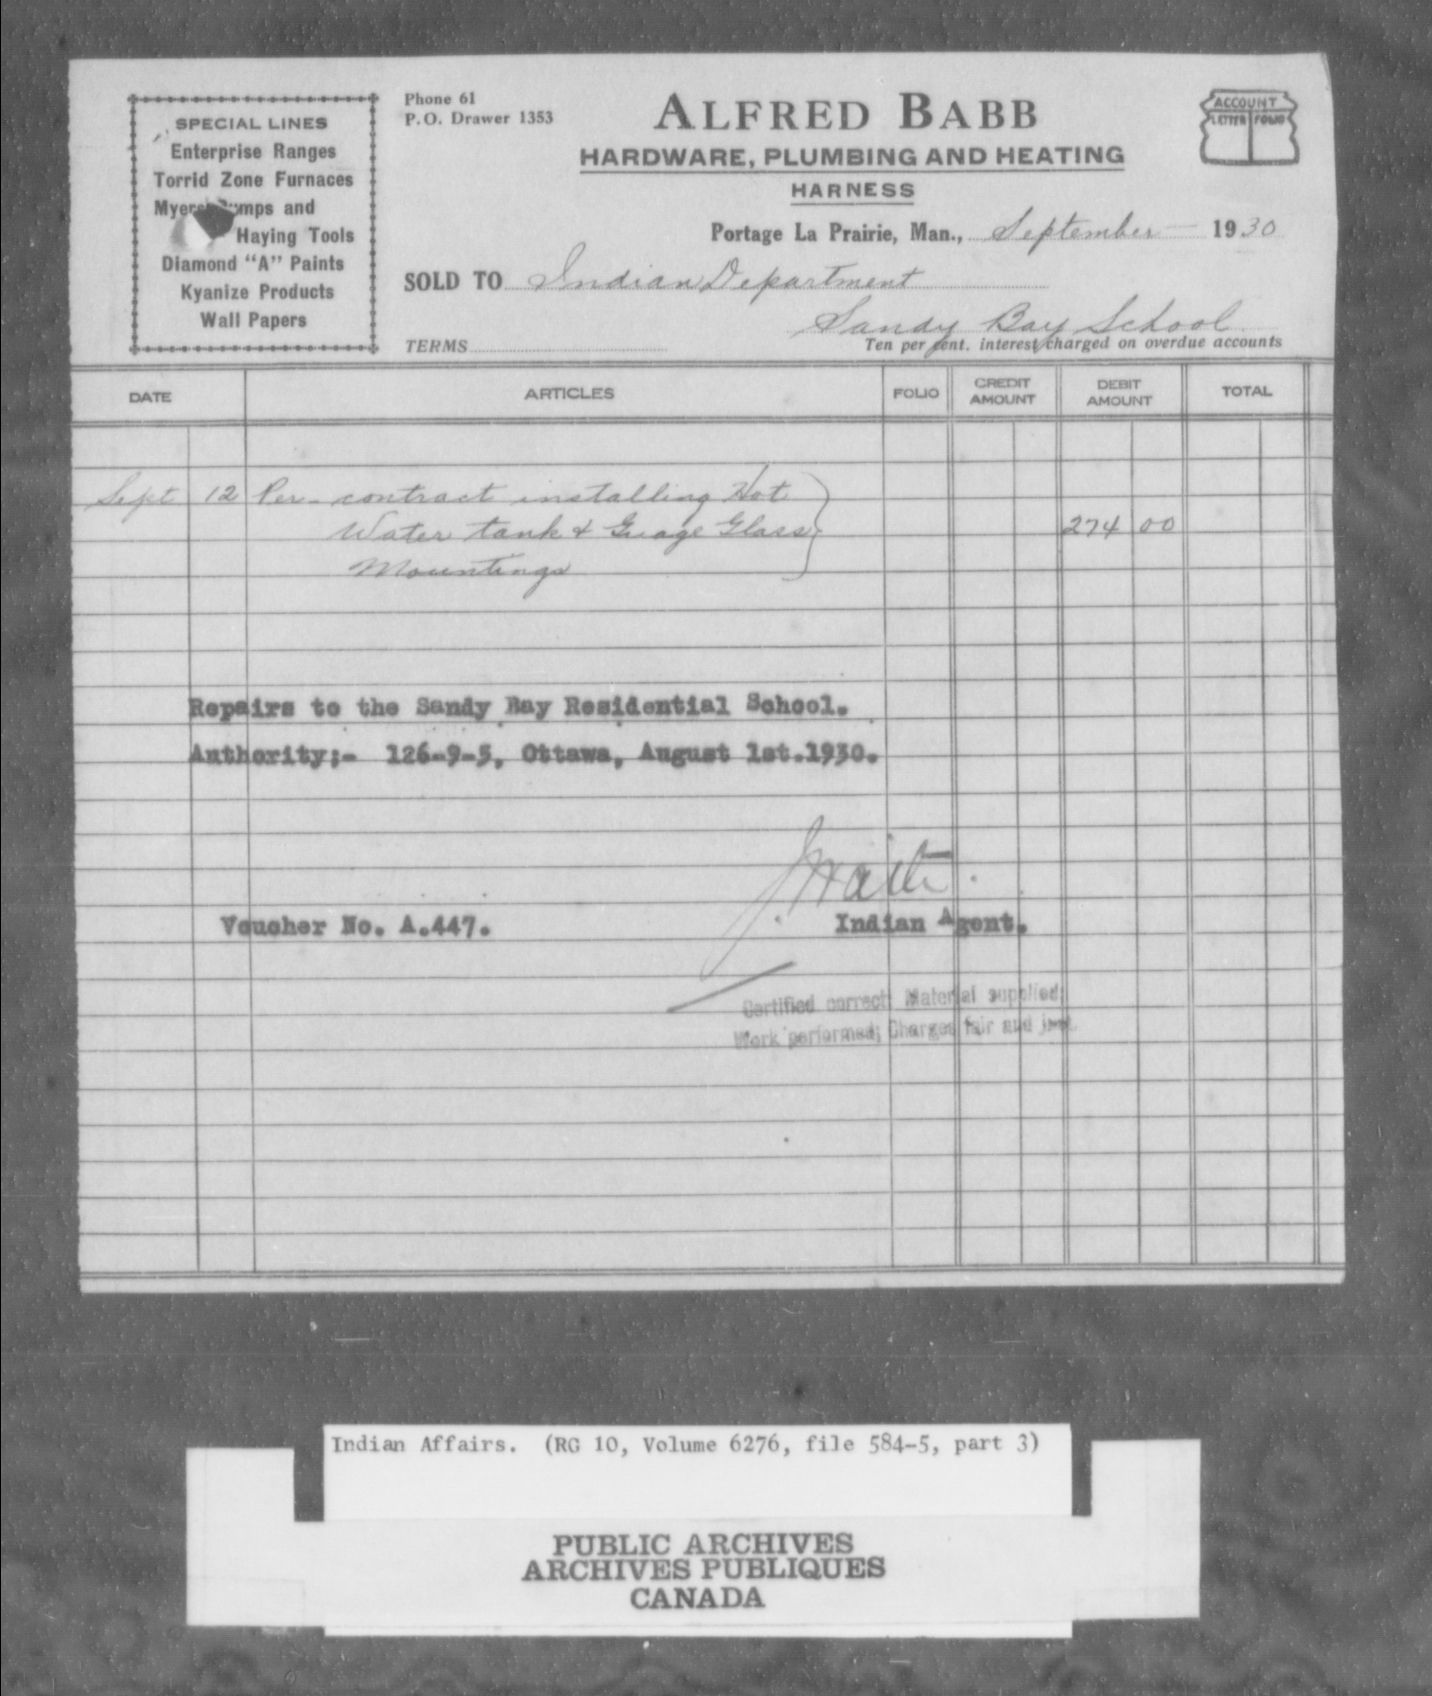 SPECIAL LINES
Enterprise Ranges
Torrid Zone Furnaces
Myers Pumps and
Haying Tools
Diamond "A" Paints
Kyanize Products
Wall Papers
Phone 61
P.O. Drawer 1353
ALFRED BABB
HARDWARE, PLUMBING AND HEATING
HARNESS
ACCOUNT
LETTER FOLIO
Portage La Prairie, Man., September 1930
SOLD TO Indian Department
Sandy Bay School
TERMS
Ten per cent. interest charged on overdue accounts
DATE ARTICLES FOLIO CREDIT AMOUNT DEBIT AMOUNT TOTAL
Sept 12 Per contract installing Hot
Water tank & Guage Glass 274 00
Mountings
Repairs to the Sandy Bay Residential School.
Authority;- 126-9-5, Ottawa, August 1st.1930.
Voucher No. A.447.
Indian Agent.
Certified correct; Material supplied;
Work performed; Charges fair and just.
Indian Affairs. (RG 10, Volume 6276, file 584-5, part 3)
PUBLIC ARCHIVES
ARCHIVES PUBLIQUES
CANADA